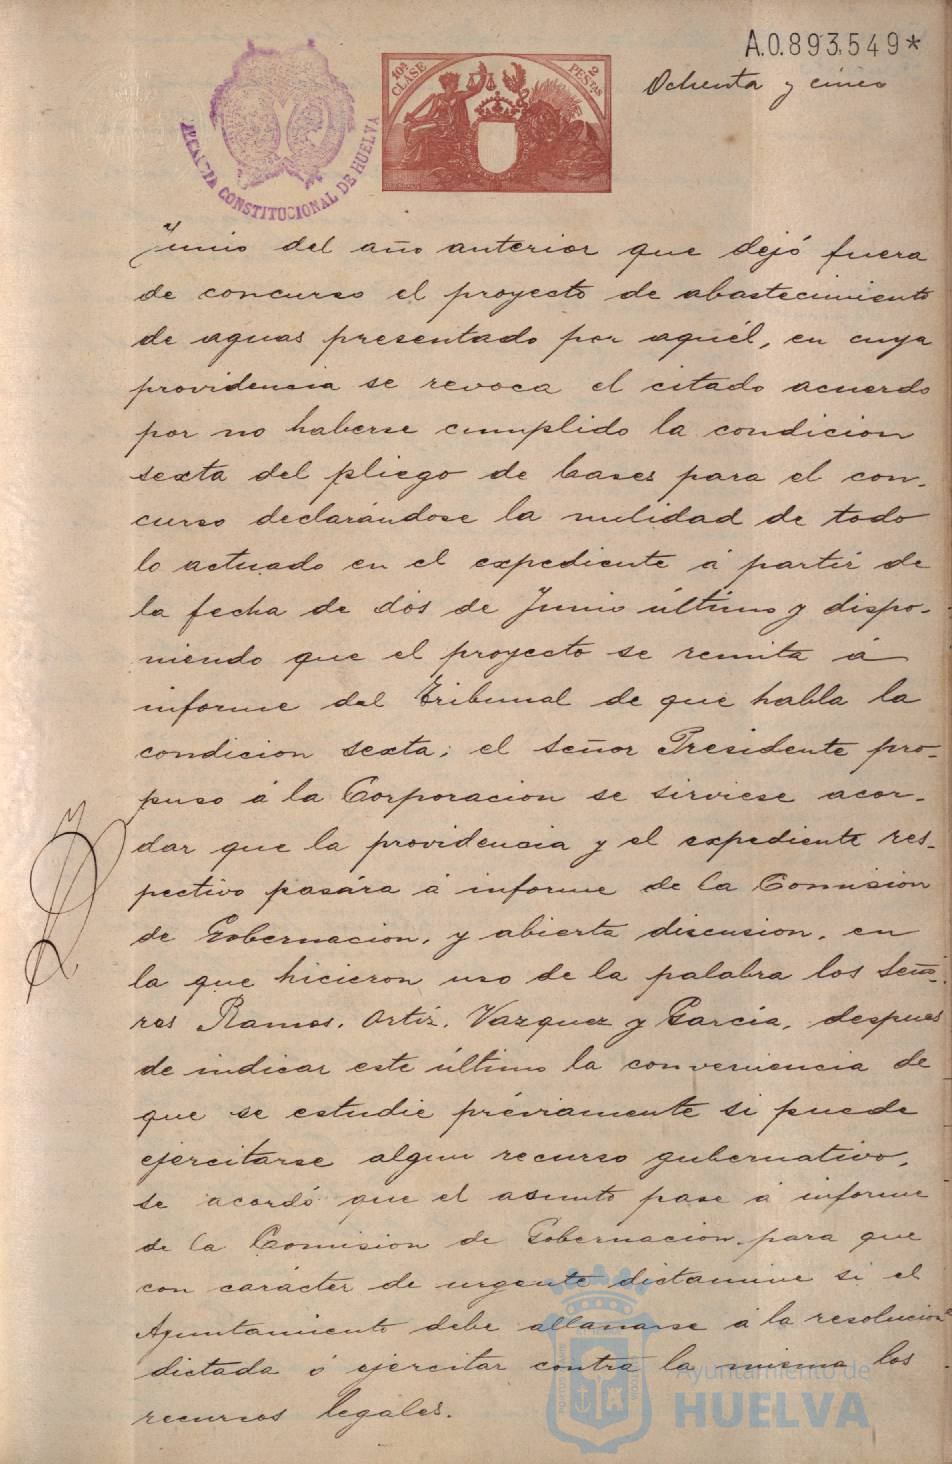 A.0.893.549*
Ochenta y cinco
10ª CLASE
2 PESTAS
ALCALDIA CONSTITUCIONAL DE HUELVA
Junio del año anterior que dejó fuera
de concurso el proyecto de abastecimiento
de aguas presentado por aquél, en cuya
providencia se revoca el citado acuerdo
por no haberse cumplido la condicion
sexta del pliego de bases para el con-
curso declarándose la nulidad de todo
lo actuado en el expediente á partir de
la fecha de dós de Junio último y dispo-
niendo que el proyecto se remita á
informe del Tribunal de que habla la
condicion sexta; el señor Presidente pro-
puso á la Corporacion se sirviese acor-
dar que la providencia y el expediente res-
pectivo pasára á informe de la Comision
de Gobernacion, y abierta discusion, en
la que hicieron uso de la palabra los Seño-
res Ramos, Ortiz, Vazquez y García, despues
de indicar este último la conveniencia de
que se estudie préviamente si puede
ejercitarse algun recurso gubernativo,
se acordó que el asunto pase á informe
de la Comision de Gobernacion para que
con carácter de urgente dictamine si el
Ayuntamiento debe allanarse á la resolucion
dictada ó ejercitar contra la misma los
recursos legales.
Ayuntamiento de
HUELVA